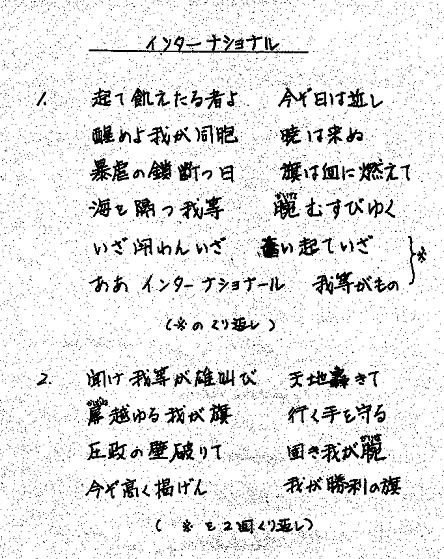 インターナショナル
1. 起て飢えたる者よ 今ぞ日は近し
醒めよ我が同胞 暁は来ぬ
暴虐の鎖断つ日 旗は血に燃えて
海を隔つ我等 腕むすびゆく
いざ闘わんいざ 奮い起ていざ
ああ インターナショナール 我等がもの
※
(※のくり返し)
2. 聞け我等が雄叫び 天地轟きて
屍越ゆる我が旗 行く手を守る
圧政の壁破りて 固き我が腕
今ぞ高く掲げん 我が勝利の旗
(※を2回くり返し)